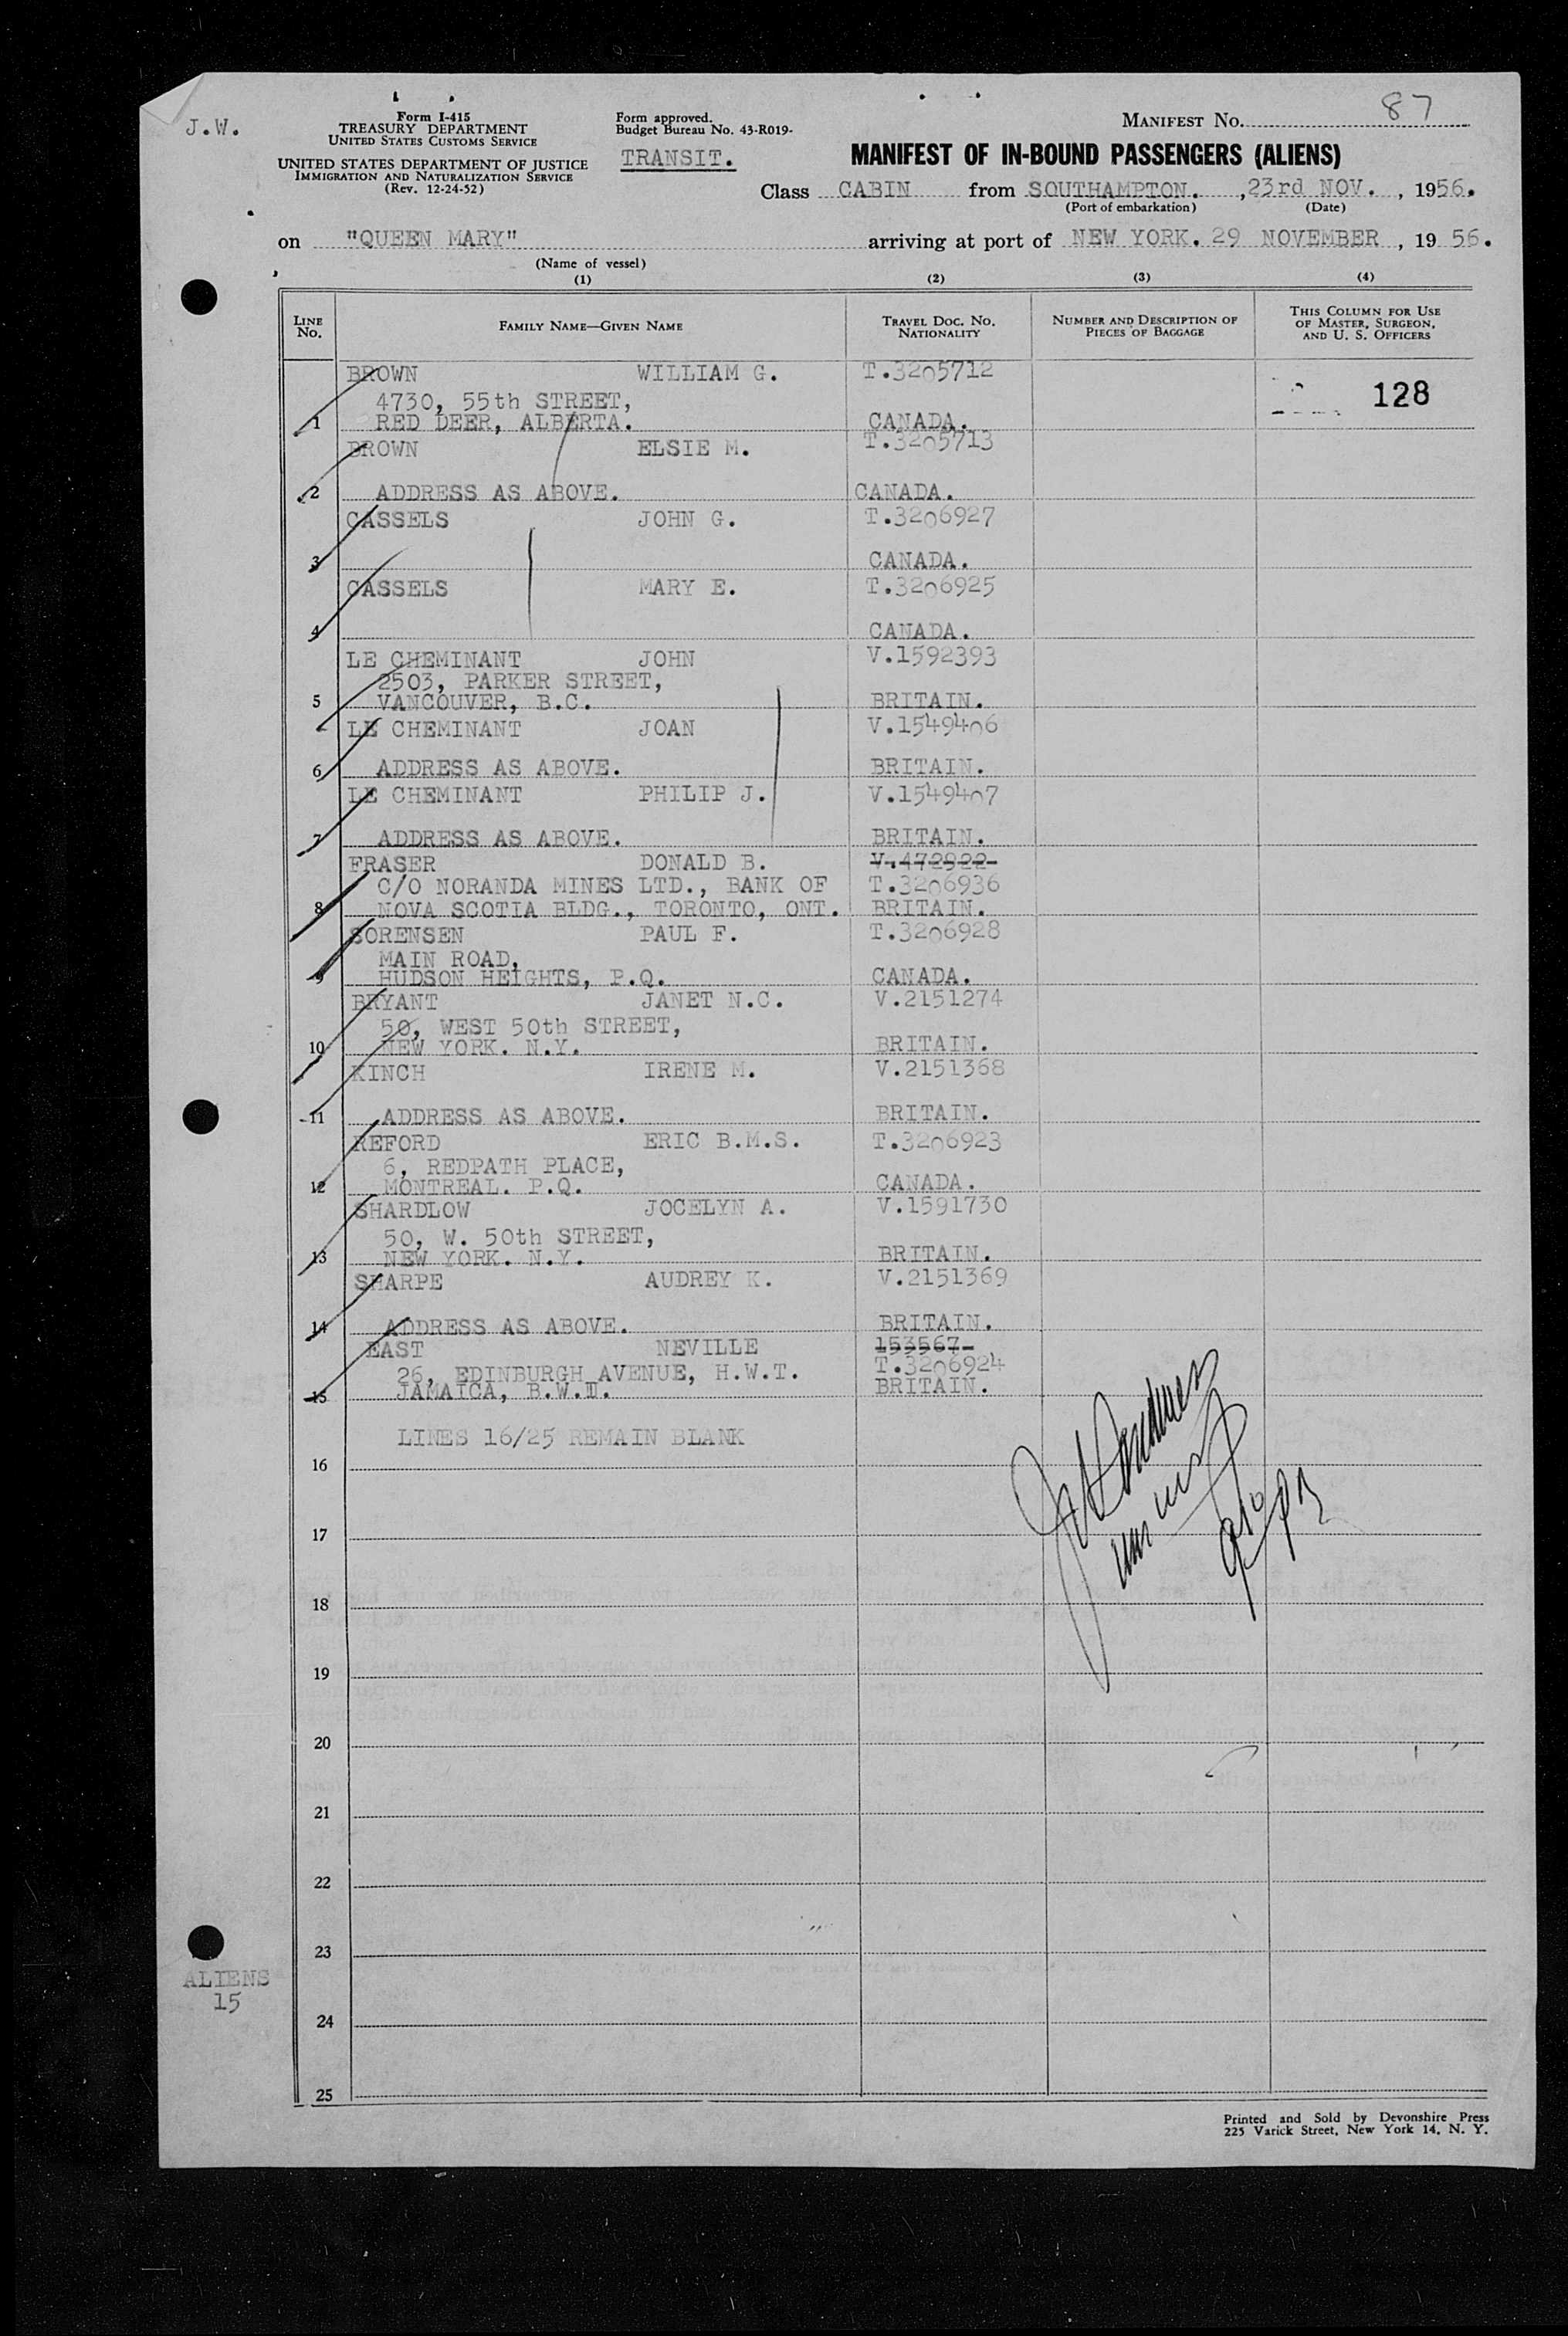 J.W.
Form I-415
TREASURY DEPARTMENT
UNITED STATES CUSTOMS SERVICE
UNITED STATES DEPARTMENT OF JUSTICE
IMMIGRATION AND NATURALIZATION SERVICE
(Rev. 12-24-52)
Form approved.
Budget Bureau No. 43-R019-
TRANSIT.
MANIFEST NO. 87
MANIFEST OF IN-BOUND PASSENGERS (ALIENS)
Class CABIN from SOUTHAMPTON. , 23rd NOV. , 1956.
(Port of embarkation) (Date)
on "QUEEN MARY" arriving at port of NEW YORK. 29 NOVEMBER , 19 56.
(Name of vessel)
(1) (2) (3) (4)
LINE NO. FAMILY NAME—GIVEN NAME TRAVEL DOC. NO. NATIONALITY NUMBER AND DESCRIPTION OF PIECES OF BAGGAGE THIS COLUMN FOR USE OF MASTER, SURGEON, AND U. S. OFFICERS
BROWN WILLIAM G. T.3205712
128
4730, 55th STREET,
1 RED DEER, ALBERTA. CANADA.
BROWN ELSIE M. T.3205713
2 ADDRESS AS ABOVE. CANADA.
CASSELS JOHN G. T.3206927
3 CANADA.
CASSELS MARY E. T.3206925
4 CANADA.
LE CHEMINANT JOHN V.1592393
2503, PARKER STREET,
5 VANCOUVER, B.C. BRITAIN.
LE CHEMINANT JOAN V.1549406
6 ADDRESS AS ABOVE. BRITAIN.
LE CHEMINANT PHILIP J. V.1549407
7 ADDRESS AS ABOVE. BRITAIN.
FRASER DONALD B. V.472922
C/O NORANDA MINES LTD., BANK OF T.3206936
8 NOVA SCOTIA BLDG., TORONTO, ONT. BRITAIN.
SORENSEN PAUL F. T.3206928
MAIN ROAD,
9 HUDSON HEIGHTS, P.Q. CANADA.
BRYANT JANET N.C. V.2151274
50, WEST 50th STREET,
10 NEW YORK. N.Y. BRITAIN.
KINCH IRENE M. V.2151368
11 ADDRESS AS ABOVE. BRITAIN.
REFORD ERIC B.M.S. T.3206923
6, REDPATH PLACE,
12 MONTREAL. P.Q. CANADA.
SHARDLOW JOCELYN A. V.1591730
50, W. 50th STREET,
13 NEW YORK. N.Y. BRITAIN.
SHARPE AUDREY K. V.2151369
14 ADDRESS AS ABOVE. BRITAIN.
EAST NEVILLE 153567
26, EDINBURGH AVENUE, H.W.T. T.3206924
15 JAMAICA, B.W.I. BRITAIN.
LINES 16/25 REMAIN BLANK
16
17
18
19
20
21
22
23
24
25
ALIENS
15
Printed and Sold by Devonshire Press
225 Varick Street, New York 14, N. Y.